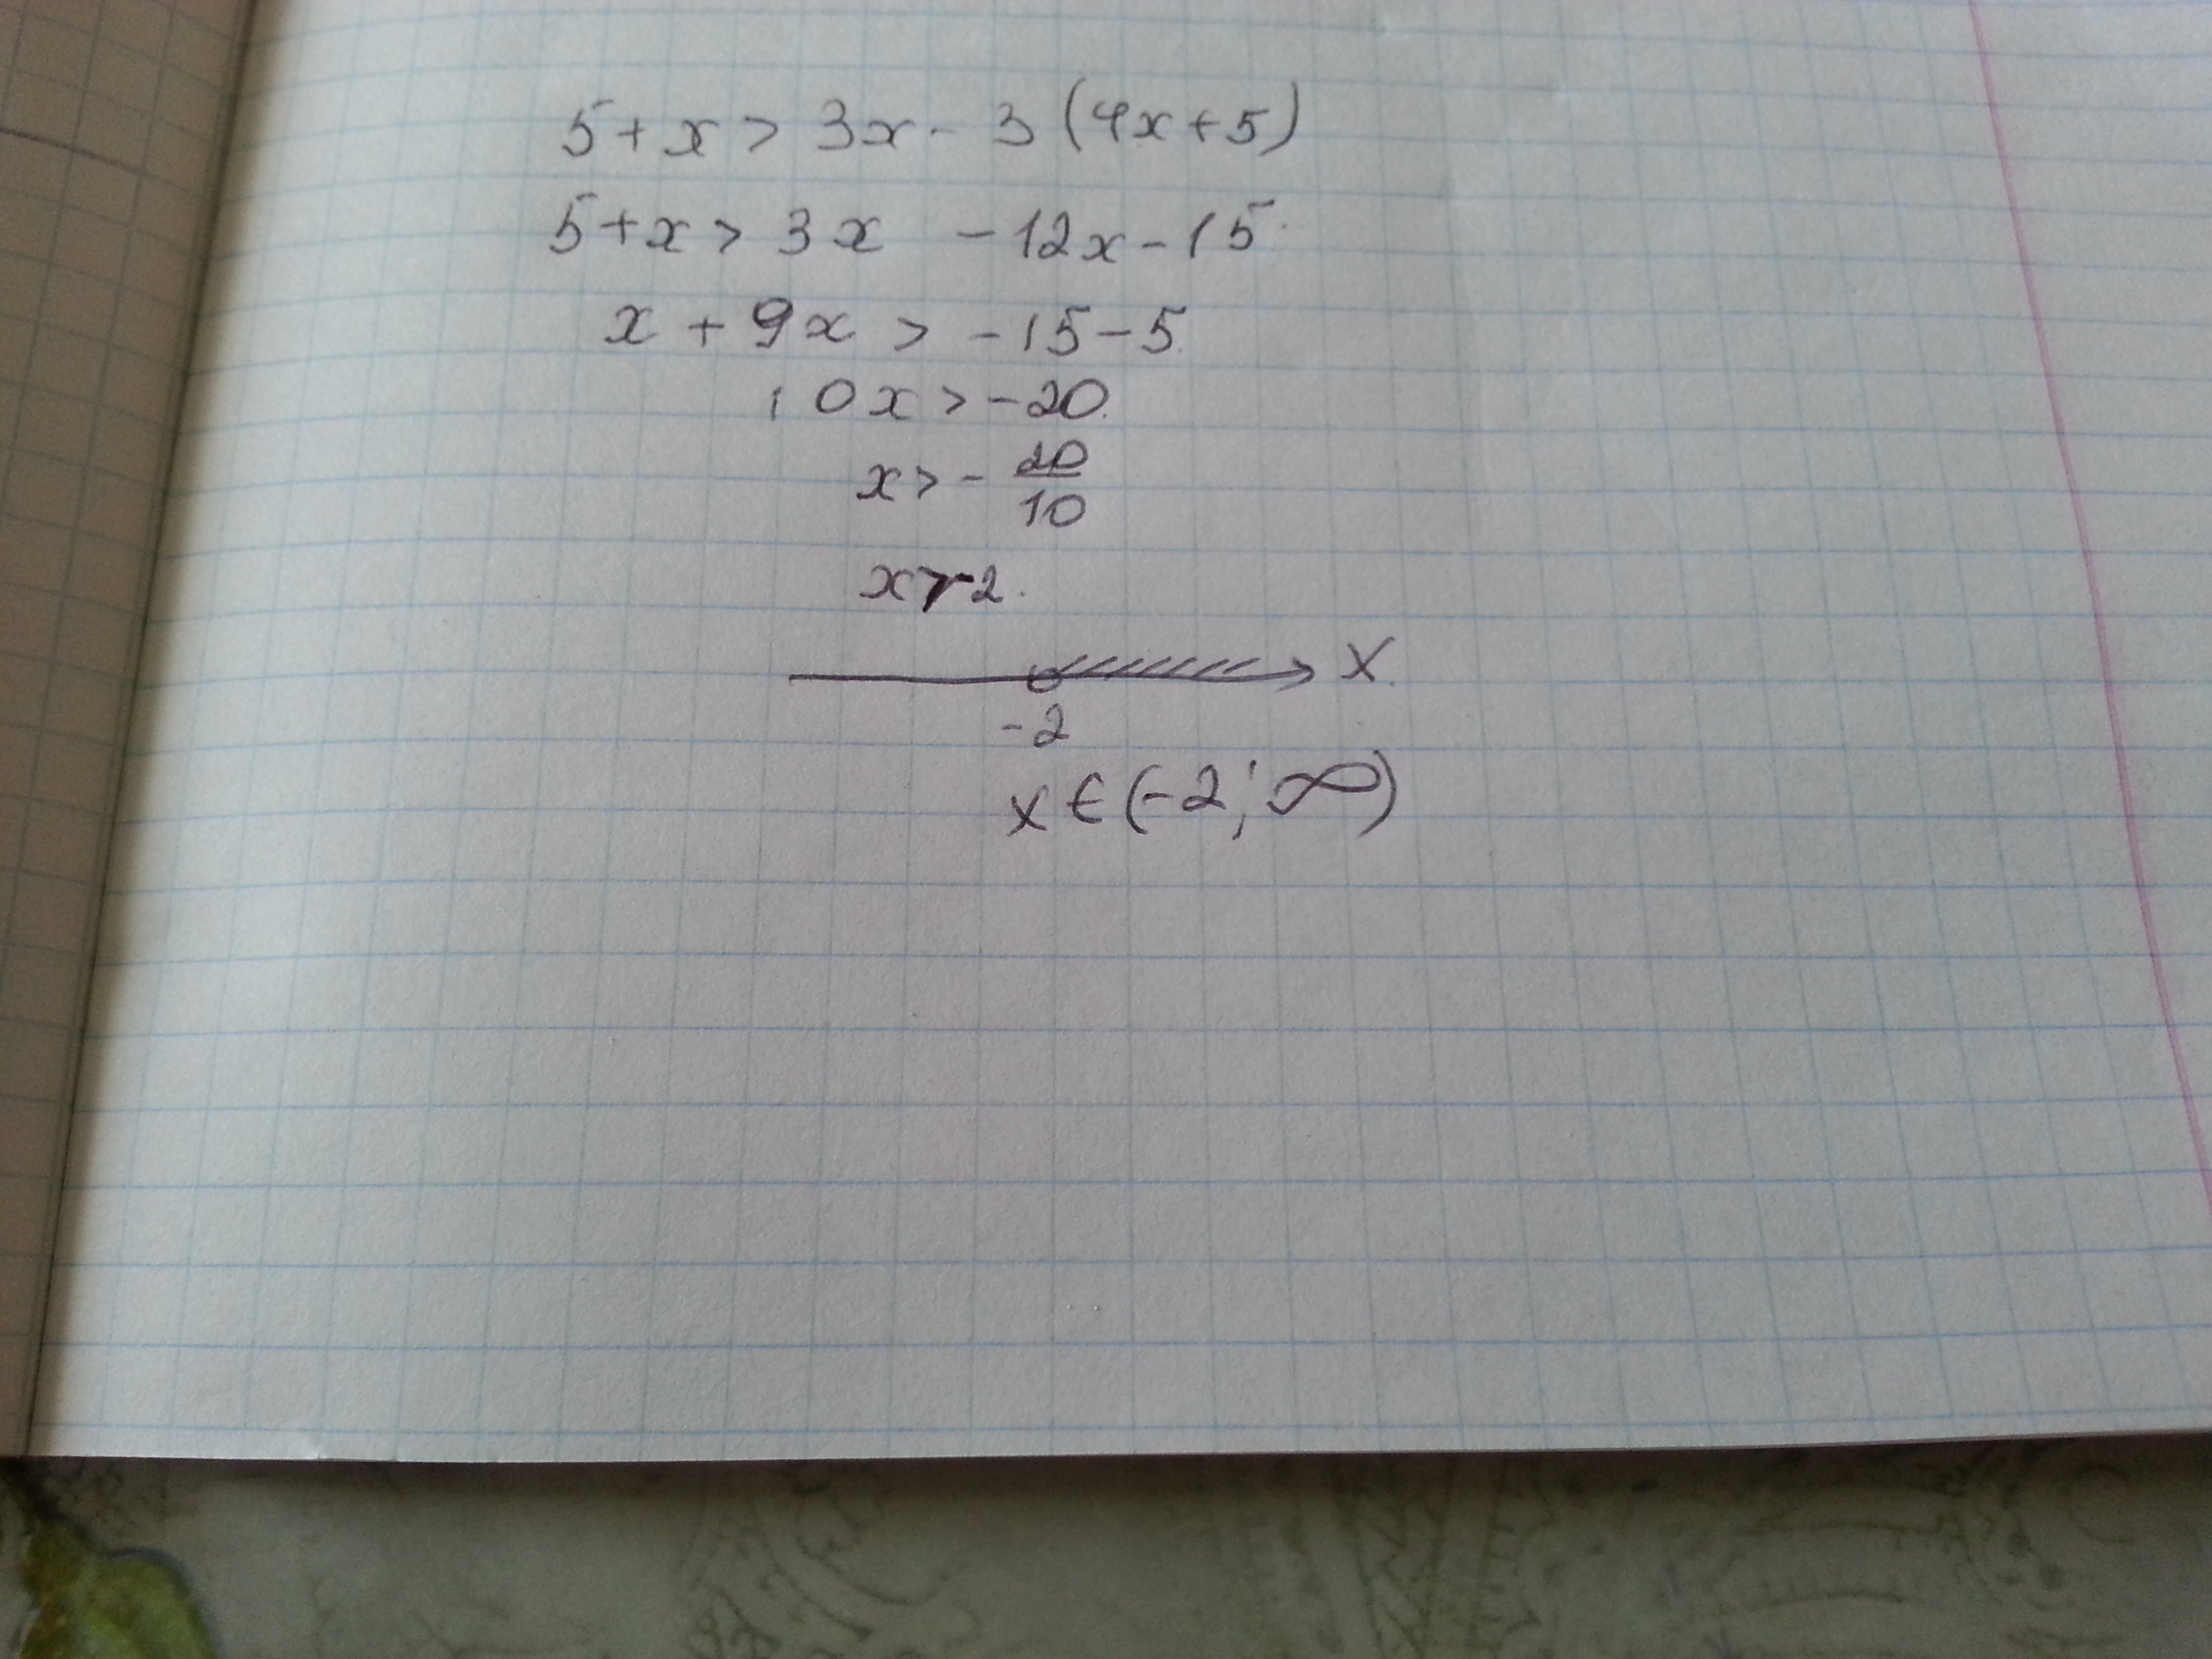 5+x > 3x - 3 (4x+5)
5+x > 3x - 12x - 15
x + 9x > -15-5
10x > -20
x > - 20/10
x > -2.
x
-2
x ∈ (-2; ∞)